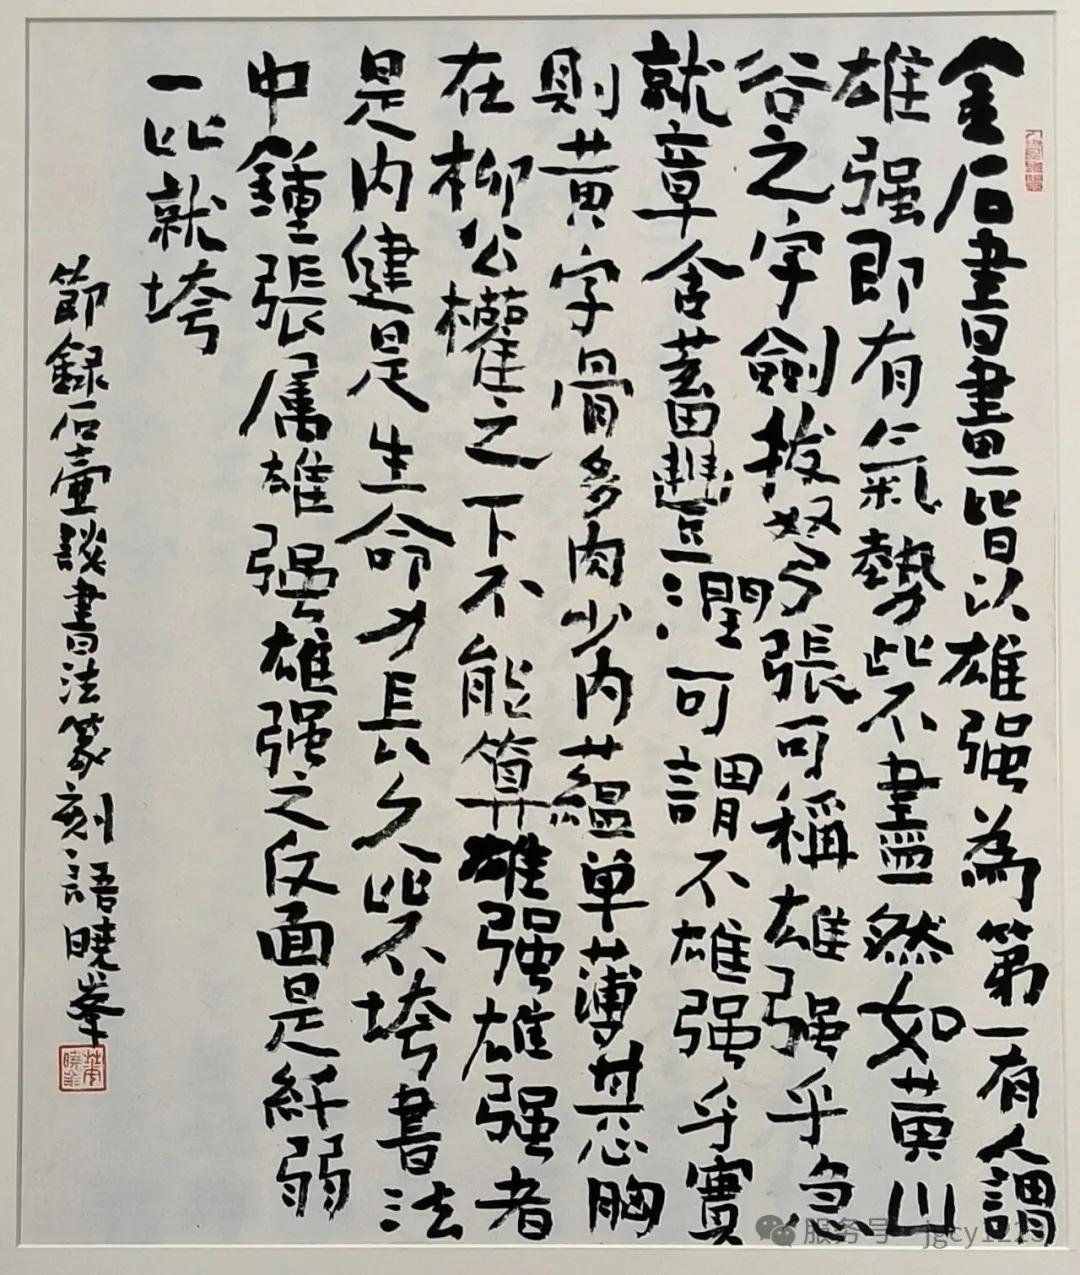 金石書畫皆以雄强為第一有人謂
雄强即有氣勢此不盡然如黄山
谷之字劍拔弩張可稱雄强乎急
就章含蓄豐潤可謂不雄强乎實
則黄字骨多肉少内藴单薄其心胸
在柳公權之下不能算雄强雄强者
是内健是生命力長久此不垮書法
中鍾張属雄强雄强之反面是纤弱
一比就垮
節録石壺談書法篆刻語曉峯
服务号 jgcy122